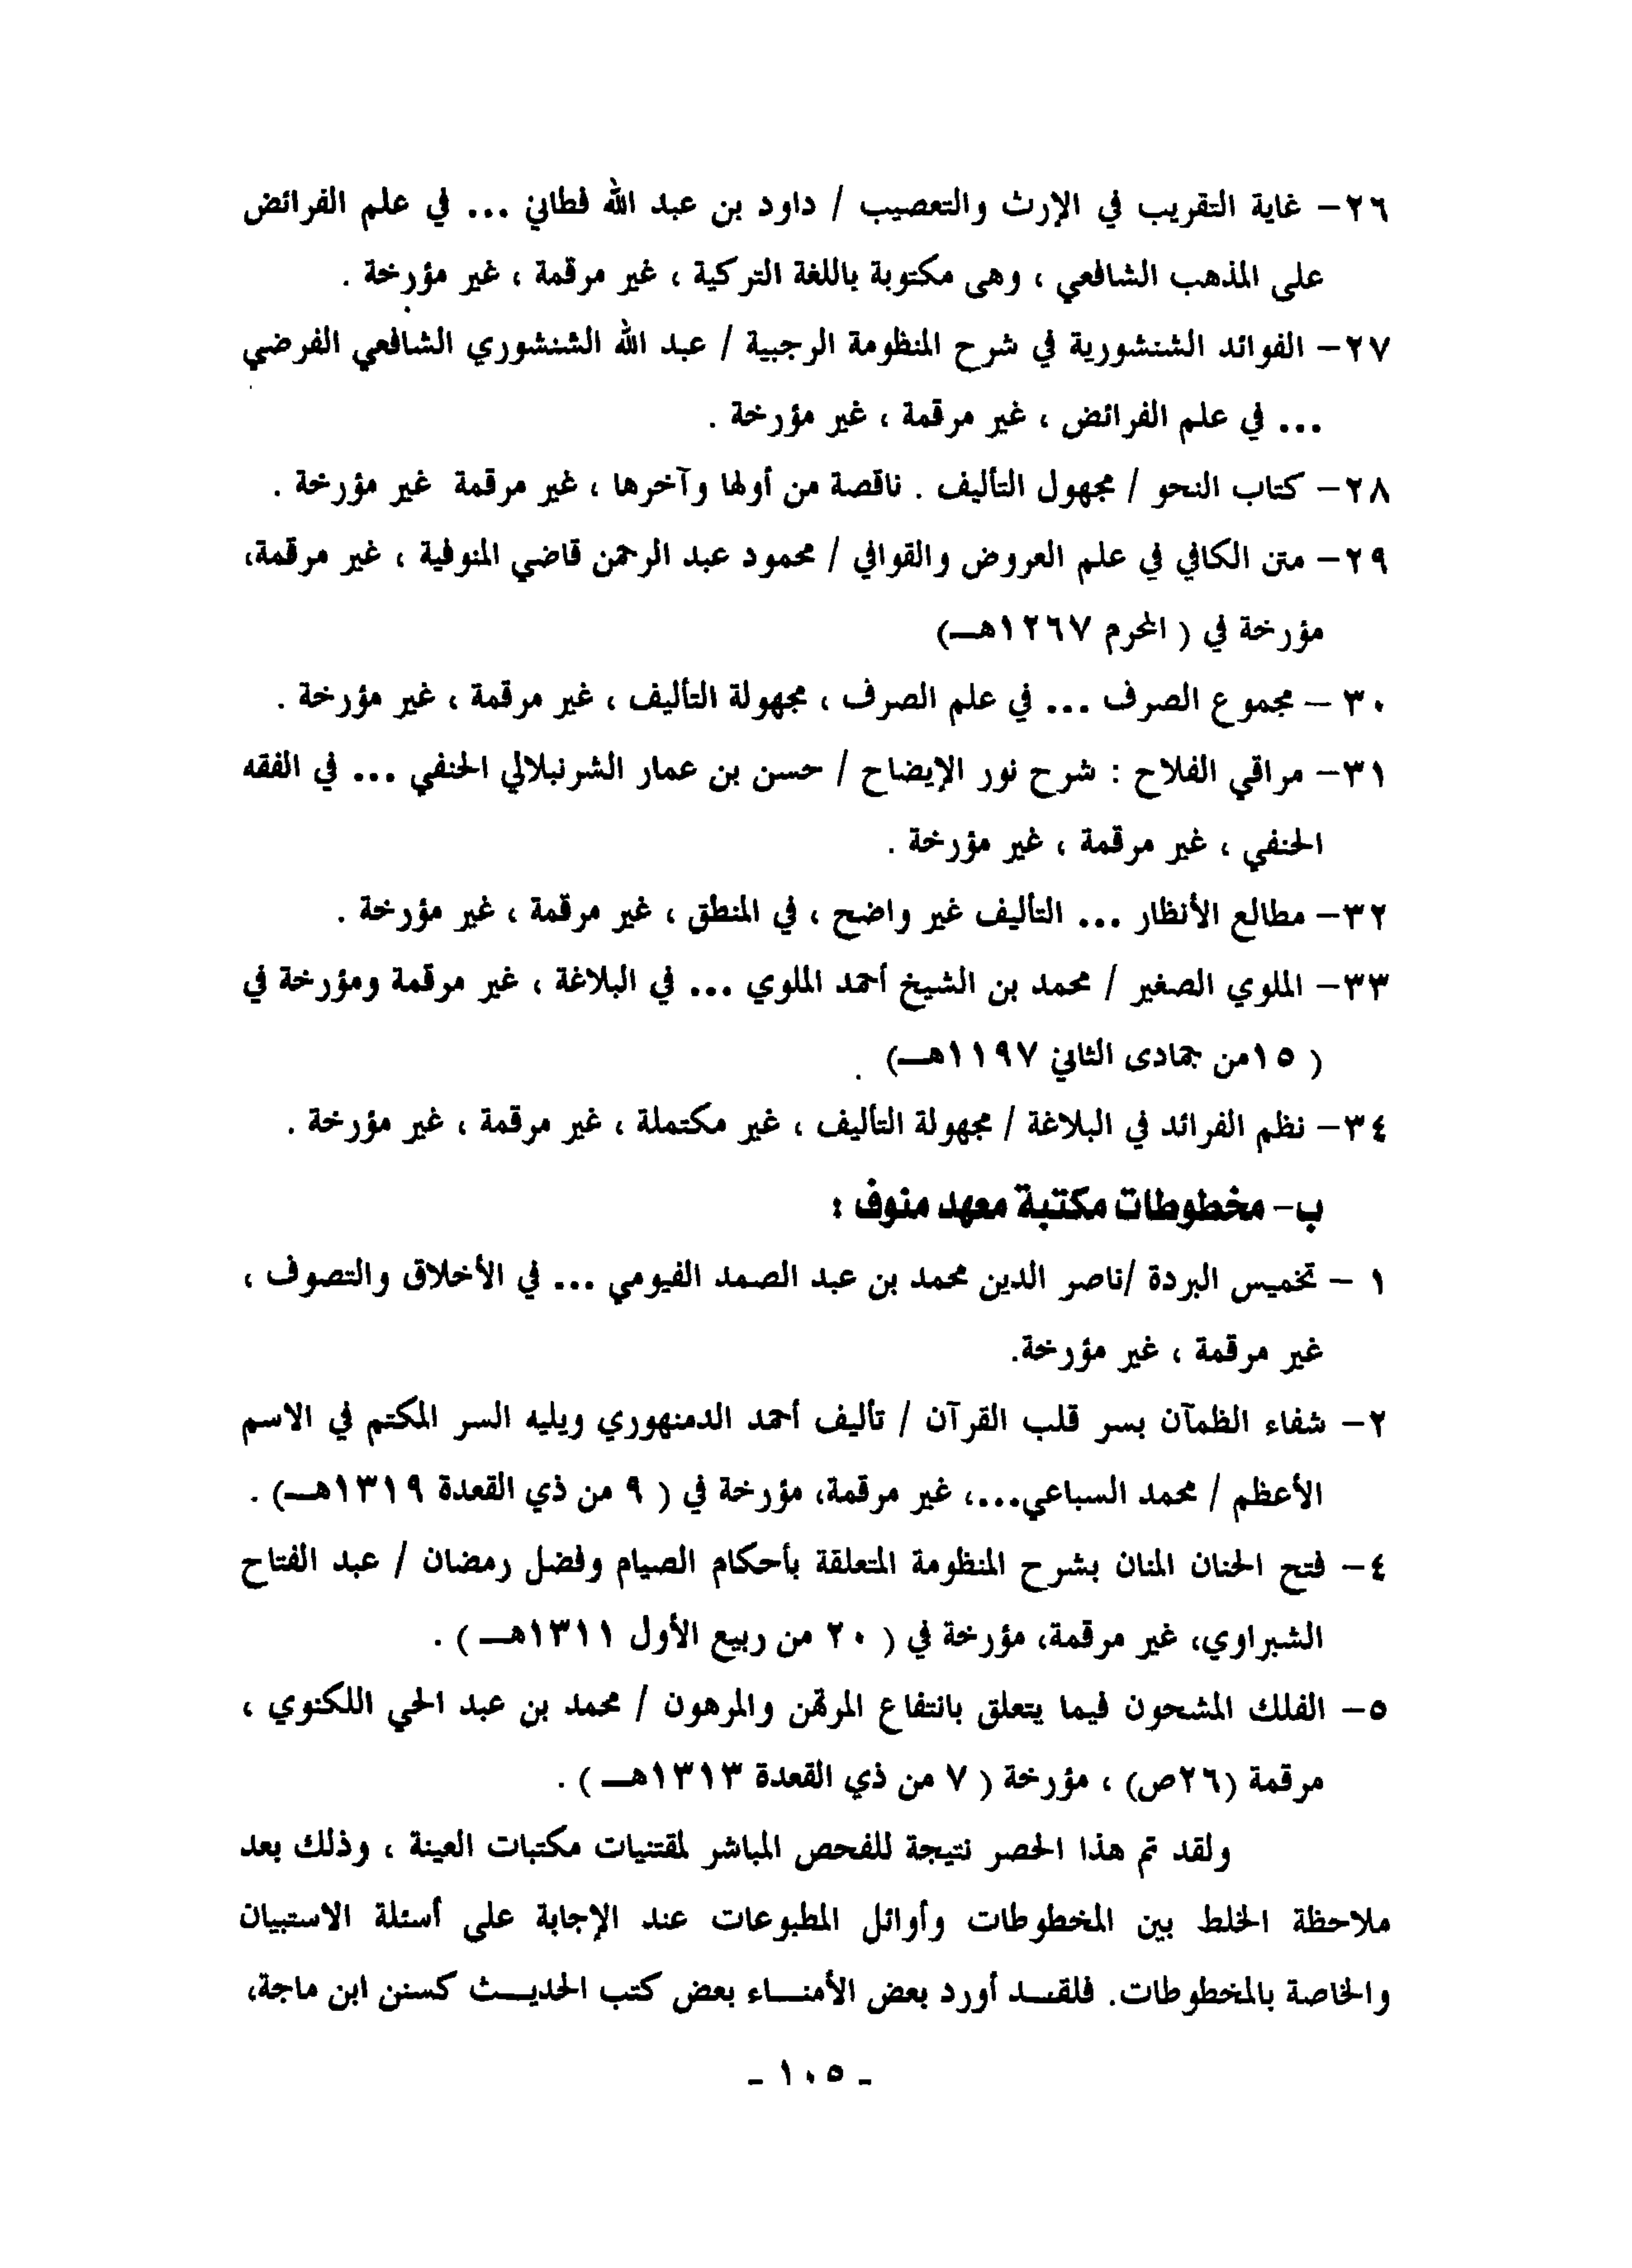 ٢٦- غاية التقريب في الإرث والتعصيب / داود بن عبد الله فطاني ... في علم الفرائض
على المذهب الشافعي ، وهى مكتوبة باللغة التركية ، غير مرقمة ، غير مؤرخة .
٢٧- الفوائد الشنشورية في شرح المنظومة الرجبية / عبد الله الشنشوري الشافعي الفرضي
... في علم الفرائض ، غير مرقمة ، غير مؤرخة .
٢٨- كتاب النحو / مجهول التأليف . ناقصة من أولها وآخرها ، غير مرقمة غير مؤرخة .
٢٩- متن الكافي في علم العروض والقوافي / محمود عبد الرحمن قاضي المنوفية ، غير مرقمة،
مؤرخة في ( المحرم ١٢٦٧هـ)
٣٠ – مجموع الصرف ... في علم الصرف ، مجهولة التأليف ، غير مرقمة ، غير مؤرخة .
٣١- مراقي الفلاح : شرح نور الإيضاح / حسن بن عمار الشرنبلالي الحنفي ... في الفقه
الحنفي ، غير مرقمة ، غير مؤرخة .
٣٢- مطالع الأنظار ... التأليف غير واضح ، في المنطق ، غير مرقمة ، غير مؤرخة .
٣٣- الملوي الصغير / محمد بن الشيخ أحمد الملوي ... في البلاغة ، غير مرقمة ومؤرخة في
( ١٥من جمادى الثاني ١١٩٧هـ) .
٣٤- نظم الفرائد في البلاغة / مجهولة التأليف ، غير مكتملة ، غير مرقمة ، غير مؤرخة .
ب- مخطوطات مكتبة معهد منوف :
١ – تخميس البردة /ناصر الدين محمد بن عبد الصمد الفيومي ... في الأخلاق والتصوف ،
غير مرقمة ، غير مؤرخة.
٢- شفاء الظمآن بسر قلب القرآن / تأليف أحمد الدمنهوري ويليه السر المكتم في الاسم
الأعظم / محمد السباعي...، غير مرقمة، مؤرخة في ( ٩ من ذي القعدة ١٣١٩هـ) .
٤- فتح الحنان المنان بشرح المنظومة المتعلقة بأحكام الصيام وفضل رمضان / عبد الفتاح
الشبراوي، غير مرقمة، مؤرخة في ( ٢٠ من ربيع الأول ١٣١١هـ ) .
٥- الفلك المشحون فيما يتعلق بانتفاع المرتهن والمرهون / محمد بن عبد الحي اللكنوي ،
مرقمة (٢٦ص) ، مؤرخة ( ٧ من ذي القعدة ١٣١٣هـ ) .
ولقد تم هذا الحصر نتيجة للفحص المباشر لمقتنيات مكتبات العينة ، وذلك بعد
ملاحظة الخلط بين المخطوطات وأوائل المطبوعات عند الإجابة على أسئلة الاستبيان
والخاصة بالمخطوطات. فلقـد أورد بعض الأمنـاء بعض كتب الحديـث كسنن ابن ماجة،
- ١٠٥ -